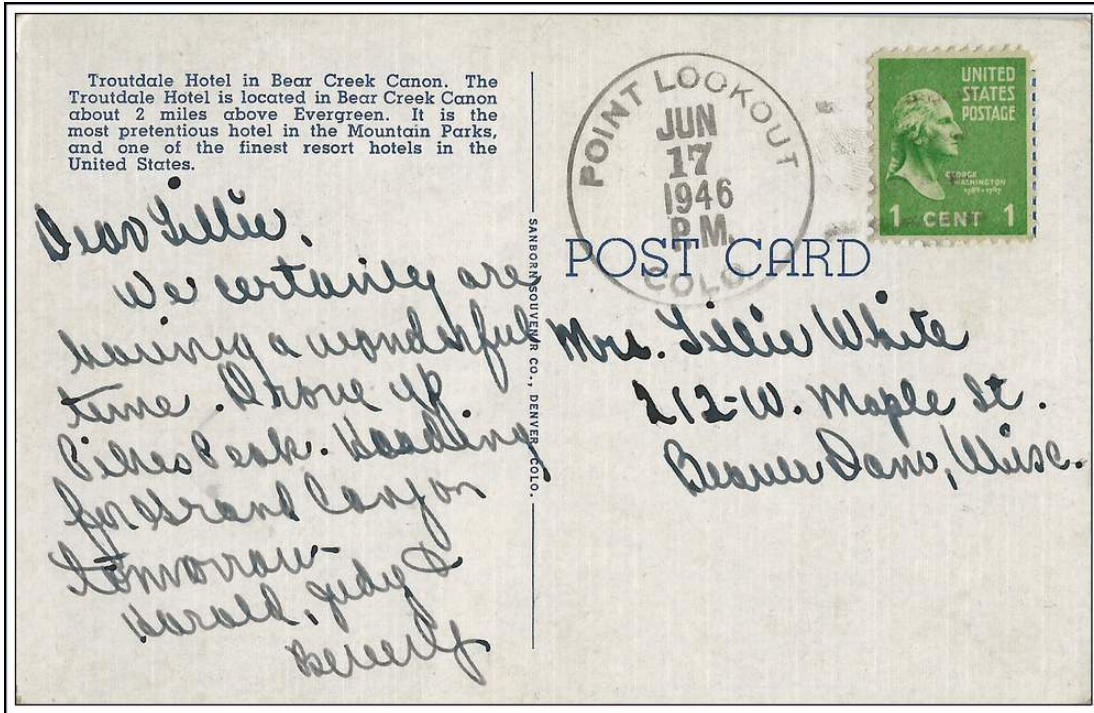 Troutdale Hotel in Bear Creek Canon. The
Troutdale Hotel is located in Bear Creek Canon
about 2 miles above Evergreen. It is the
most pretentious hotel in the Mountain Parks,
and one of the finest resort hotels in the
United States.
Dear Lillie.
We certainly are
having a wonderful
time. Drove up
Pikes Peak. Heading
for Grand Canyon
tomorrow—
Harold, Judy &
Beverly
SANBORN SOUVENIR CO., DENVER, COLO.
POINT LOOKOUT
JUN
17
1946
P.M.
COLO.
UNITED
STATES
POSTAGE
GEORGE
WASHINGTON
1789-1797
1 CENT 1
POST CARD
Mrs. Lillie White
212-W. Maple St.
Beaver Dam, Wisc.